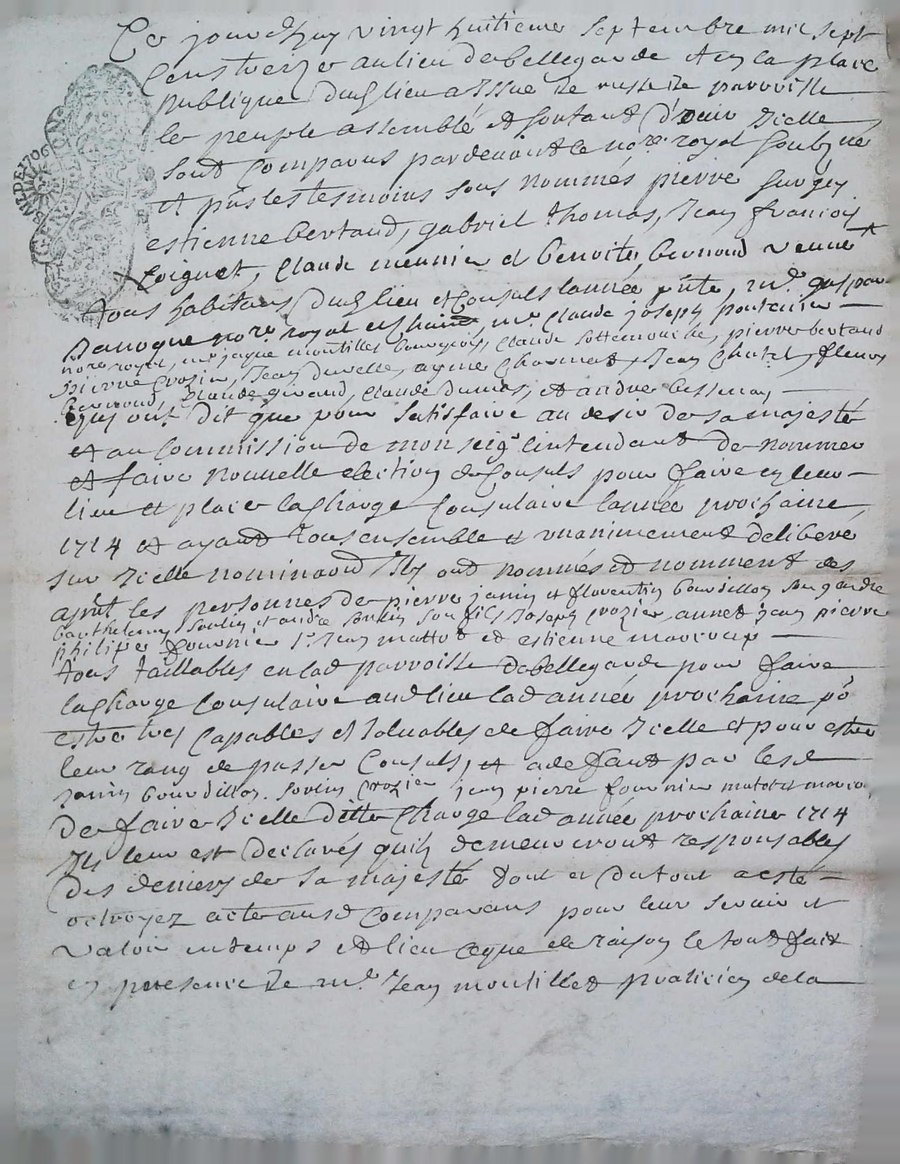 Ce jourdhuy vingt huitieme septembre mil sept
cens treize au lieu de bellegarde & en la place
publique dud lieu a issue de messe de parroisse
le peuple assemblé et sortant d'ouir icelle
sont comparus pardevant le nore royal soubzné
et pnts les tesmoins sous nommés pierre
estienne bertaud, gabriel thomas, Jean françois
Coignet, Claude meunier et benoite bernoud veuve
BAIL DE 1706
tous habitans dud lieu et Consuls lannée pnte, me gaspar
nore royal, me Claude joseph
nore royal, me jaque montillet bourgeois, Claude pierre bertaud
pierre Crozier, Jean Duvelle, ayme Charmet, Jean fleury
bernoud, Claude Giraud, Claude Dumas, et andre
qui ont dit que pour satisfaire au desir de sa majesté
et au commission de monseigr lintendant de nommer
et faire nouvelle election de Consuls pour faire en leur
lieu et place la Charge Consulaire lannée prochaine
1714 et ayant tous ensemble et unanimement deliberé
sur icelle nominaon Ils ont nommés et nomment des
aprnt les personnes de pierre janin et florentin bourdillon son gendre
barthelemy soulin et andré soulin son fils Joseph Crozier, annet jean pierre
philiper fournier Sr Jean mattot et estienne
tous taillables en lad parroisse de bellegarde pour faire
la Charge Consulaire aud lieu lad année prochaine po
estre tres Capables et solvables de faire icelle et pour estre
leur rang de passer Consuls, et a defaut par lesd
janin bourdillon soulin Crozier jean pierre fournier matot et
de faire icelle ditte Charge lad année prochaine 1714
Ils leur est declarés quils demeureront responsables
des deniers de sa majesté dont et du tout a esté
octroyez acte ausd Comparans pour leur servir et
valoir en temps et lieu ceque de raison le tout fait
en presence de me Jean montillet praticien de la